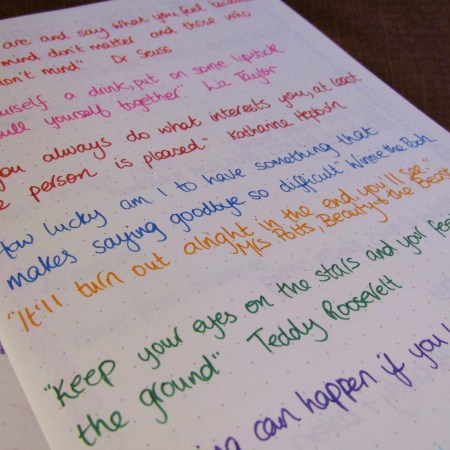 are and say what you feel because
mind don't matter and those who
don't mind" Dr Seuss
yourself a drink, put on some lipstick
pull yourself together" Liz Taylor
you always do what interests you, at least
person is pleased" Katharine Hepburn
How lucky am I to have something that
makes saying goodbye so difficult" Winnie the Pooh
"It'll turn out alright in the end, you'll see"
Mrs Potts, Beauty & the Beast
"Keep your eyes on the stars and your feet
the ground" Teddy Roosevelt
can happen if you